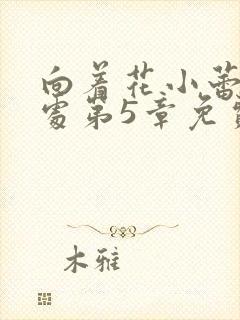 向着花小蕾
处第5章免费
木雅